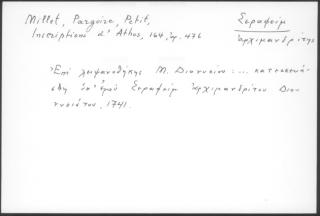 Millet, Pargoire, Petit,
Σεραφείμ
Inscriptions d'Athos, 164, ἀρ. 476
ἀρχιμανδρίτης
Ἐπὶ λειψανοθήκης Μ. Διονυσίου: ... κατεσκευά-
σθη ὑπ' ἐμοῦ Σεραφεὶμ ἀρχιμανδρίτου Διον-
υσιάτου, 1741.